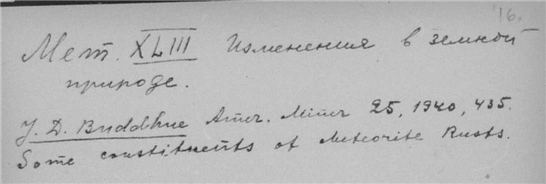 '16.
Мет. XLIII Изменения в земной
природе.
J. D. Buddhue Amer. Miner 25, 1940, 435.
Some constituents of Meteorite Rusts.